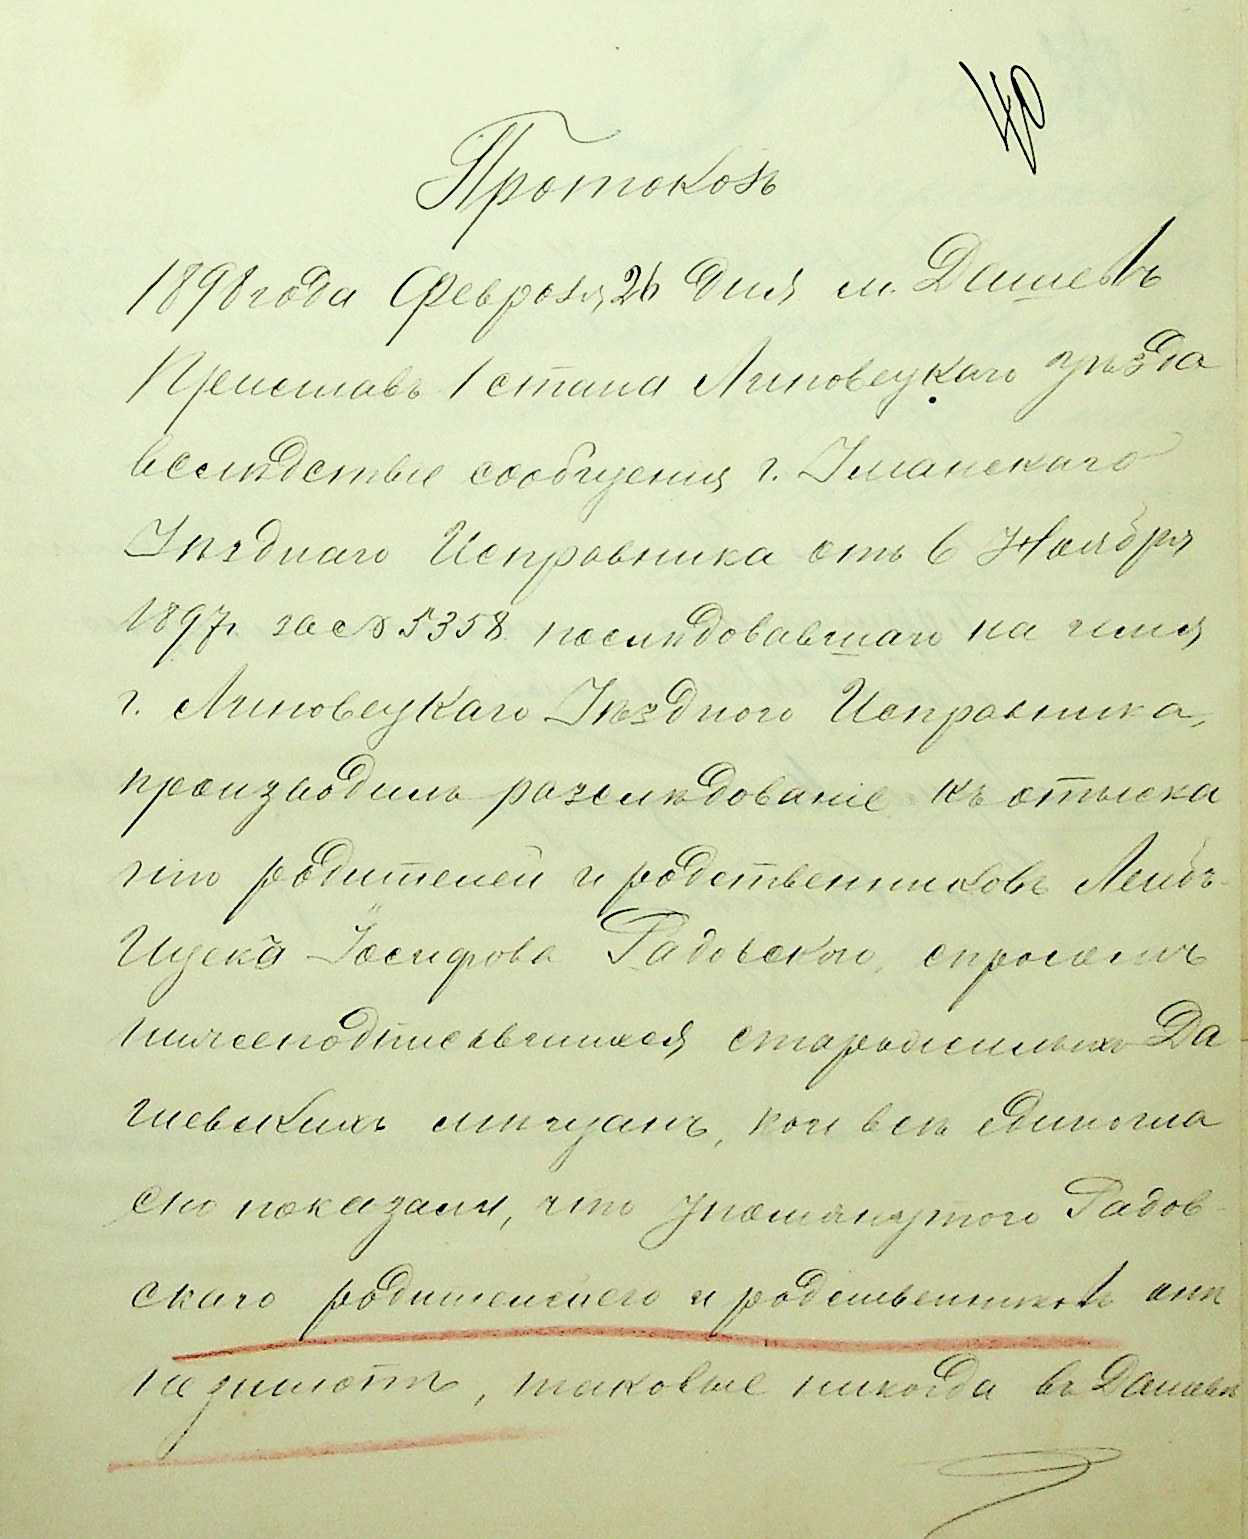 40
Протоколъ
1898 года Февраля 26 дня м. Дашевъ
Приставъ 1 стана Липовецкаго уѣзда
вслѣдствіе сообщенія г. Уманскаго
Уѣзднаго Исправника отъ 6 Ноября
1897 г. за № 5358 послѣдовавшаго на имя
г. Липовецкаго Уѣздного Исправника,
производилъ разслѣдованіе къ отыска
нію родителей и родственниковъ Лейбъ-
Ицека Іосифова Радовского, спросомъ
нижеподписавшихся старожиловъ Да-
шевскихъ мѣщанъ, кои всѣ единогла
сно показали, что упомянутого Радов-
скаго родителей его и родственниковъ они
не знаютъ, таковые никогда въ Дашевѣ